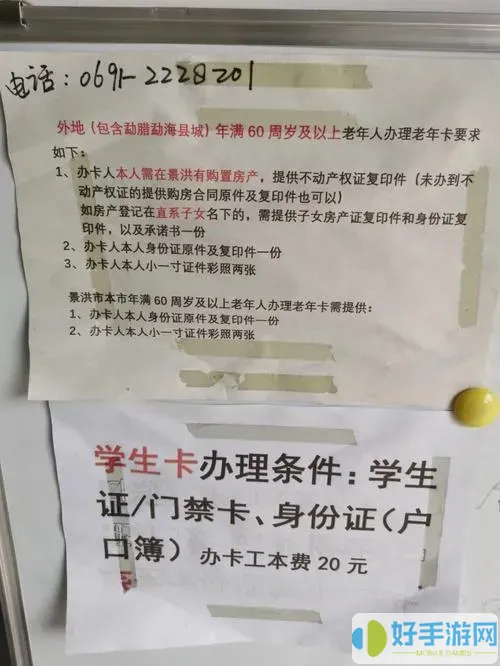 电话：0691-2228201
外地（包含勐腊勐海县城）年满 60 周岁及以上老年人办理老年卡要求
如下：
1、办卡人本人需在景洪有购置房产，提供不动产权证复印件（未办到不
动产权证的提供购房合同原件及复印件也可以）
如房产登记在直系子女名下的，需提供子女房产证复印件和身份证复
印件，以及承诺书一份
2、办卡人本人身份证原件及复印件一份
3、办卡人本人小一寸证件彩照两张
景洪市本市年满 60 周岁及以上老年人办理老年卡需提供：
1、办卡人本人身份证原件及复印件一份
2、办卡人本人小一寸证件彩照两张
学生卡办理条件：学生
证/门禁卡、身份证（户
口簿） 办卡工本费 20 元
好手游网
MOBILE GAMES